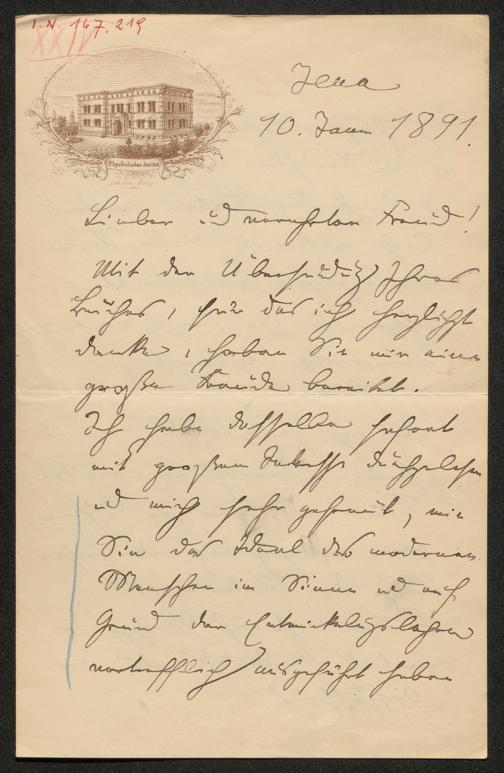 I.N. 167.219
XXIV
Physikalisches Institut
Jena
10. Januar 1891.
Lieber und verehrter Freund!
Mit der Übersendung Ihres
Buches, für das ich herzlichst
danke, haben Sie mir eine
große Freude bereitet.
Ich habe dasselbe sofort
mit großem Interesse durchgelesen
und mich sehr gefreut, wie
Sie das Ideal des modernen
Menschen im Sinne und auf
Grund der Entwickelungslehre
vortrefflich ausgeführt haben